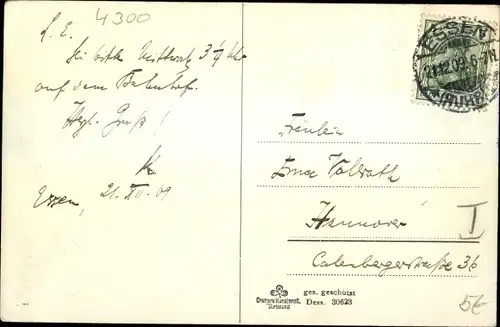 4300
L. E.
Sei bitte Mittwoch 3 1/4 Uhr
auf dem Bahnhof.
Herzl. Gruß!
K
Essen, 21. XII. 09
ESSEN
21.12.09.6-7N
(RUHR)
Fräulein
Erna Vollrath
Hannover I
Calenbergerstraße 36
ges. geschützt
Dess. 30623
5€